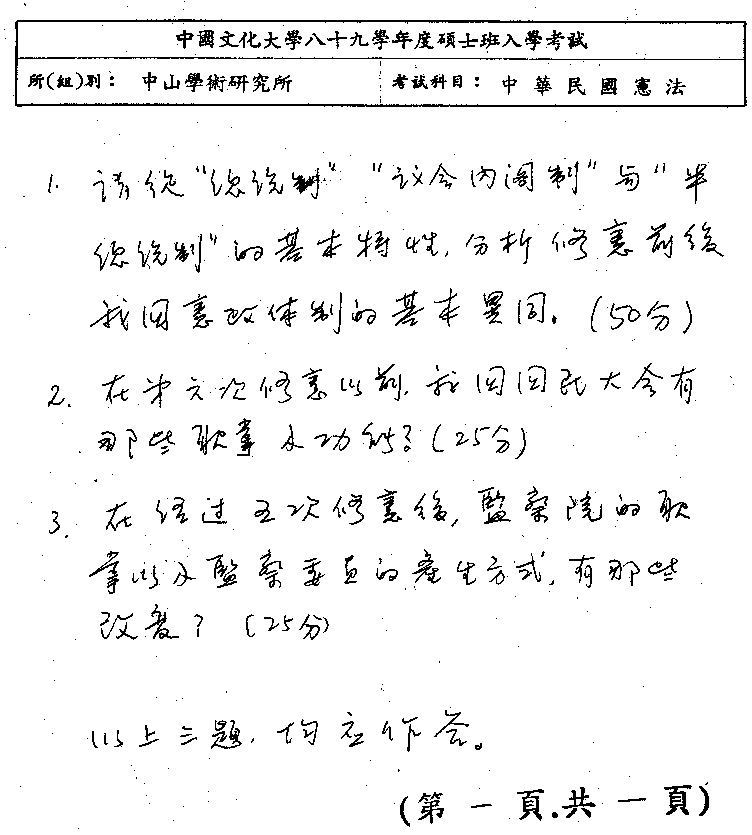 中國文化大學八十九學年度碩士班入學考試
所(組)別： 中山學術研究所 考試科目： 中華民國憲法
1. 請從“總統制”“议会内阁制”与“半
總統制”的基本特性，分析修憲前後
我国憲政体制的基本異同。(50分)
2. 在第六次修憲以前，我国国民大会有
那些职掌及功能？(25分)
3. 在经过五次修憲後，監察院的职
掌以及監察委员的產生方式，有那些
改變？(25分)
以上三題，均应作答。
(第一頁.共一頁)